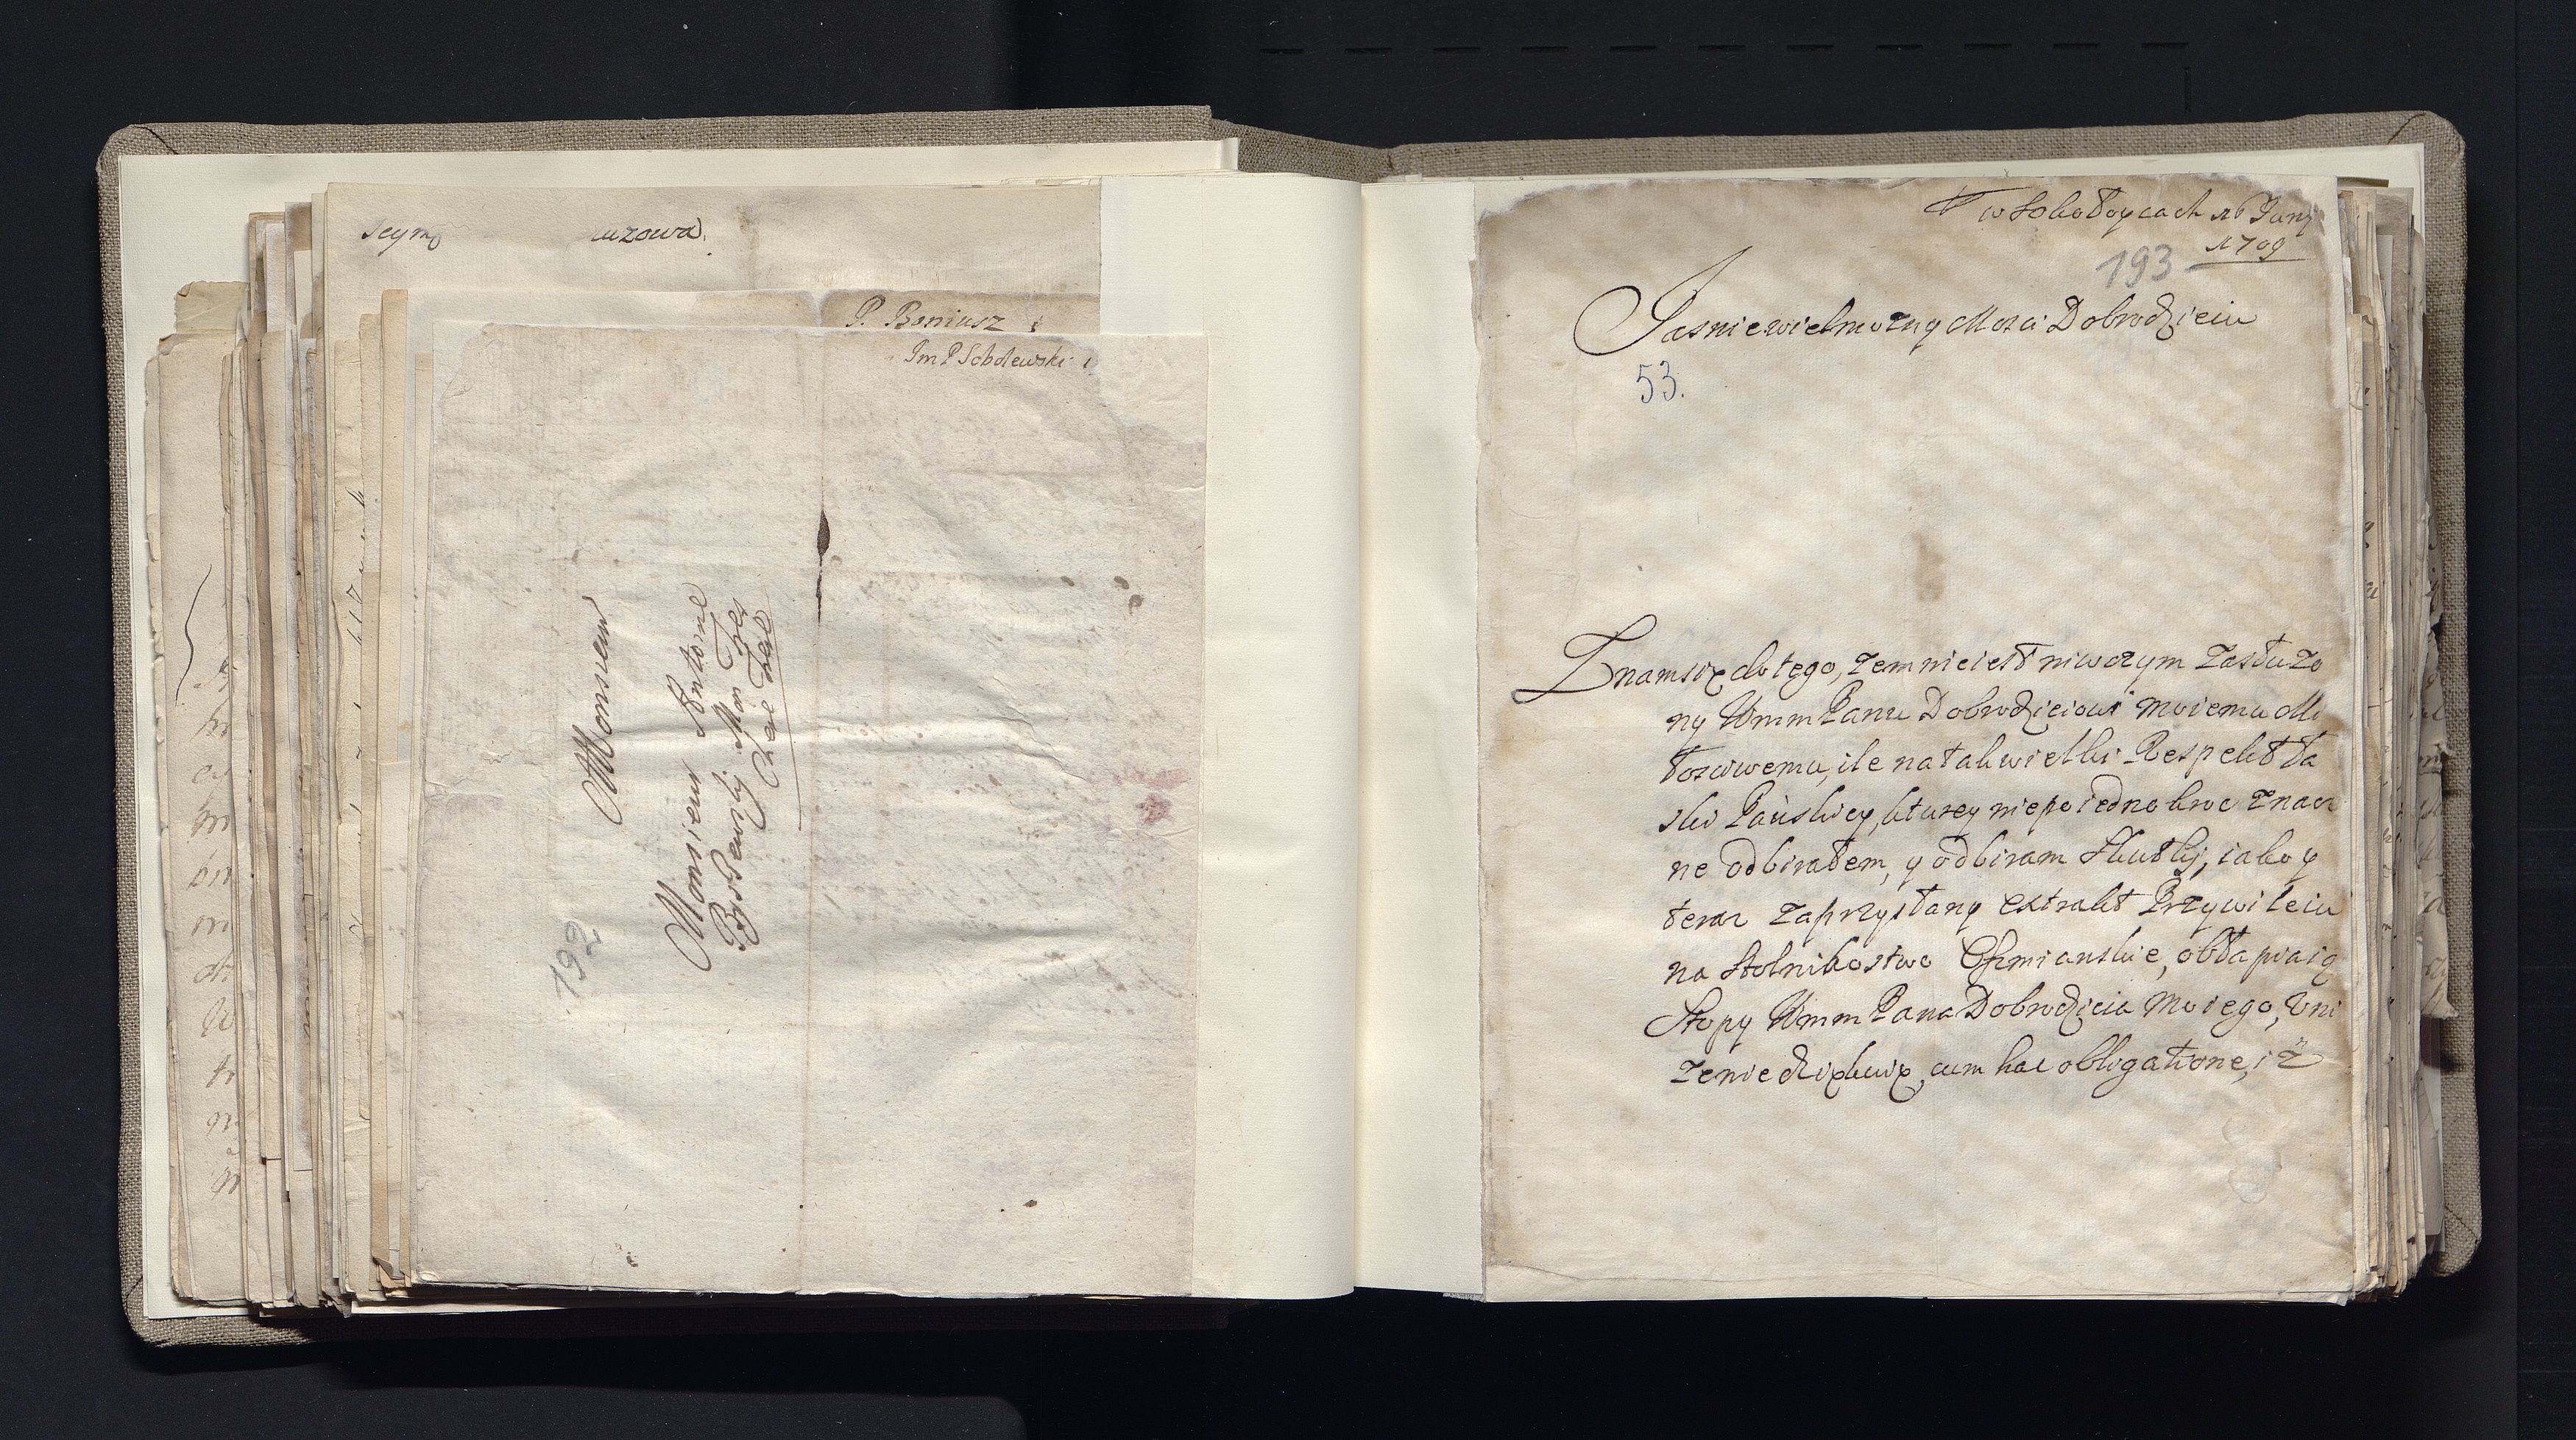 P. Boniusz
Im P Sobolewski
Monsieur
Monsieur Antoine
Mon Tres
Cher Frere
192
w Sobotycach 26 Junij
1709
193
Jasnie wielmozny Mosci Dobrodzieiu
53.
Znam się do tego, zem nie iest niwczym zasłuzo
ny Wmm Panu Dobrodzieiowi moiemu Mi
łosciwemu, ile na tak wielki Respekt Ła
ski Pańskiey, kturey niepoiednokroc znacz
ne odbirałem, y odbiram Skutki, iako y
teraz za przysłany extrakt Przywileiu
na Stolnikostwo Oszmianskie, obłapiaią
Stopy Wmm Pana Dobrodzieia moiego, Uni
zenie dziękuię, cum hac obligatione, iż